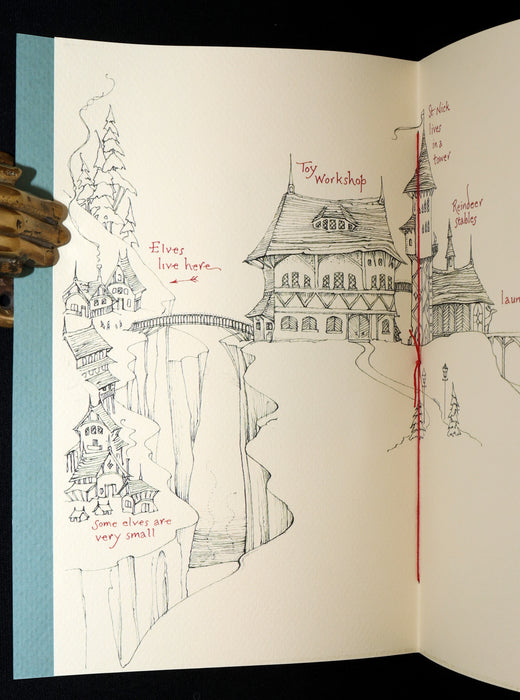 St Nick
lives
in a
tower
Toy
Workshop
Reindeer
stables
Elves
live here
Some elves are
very small